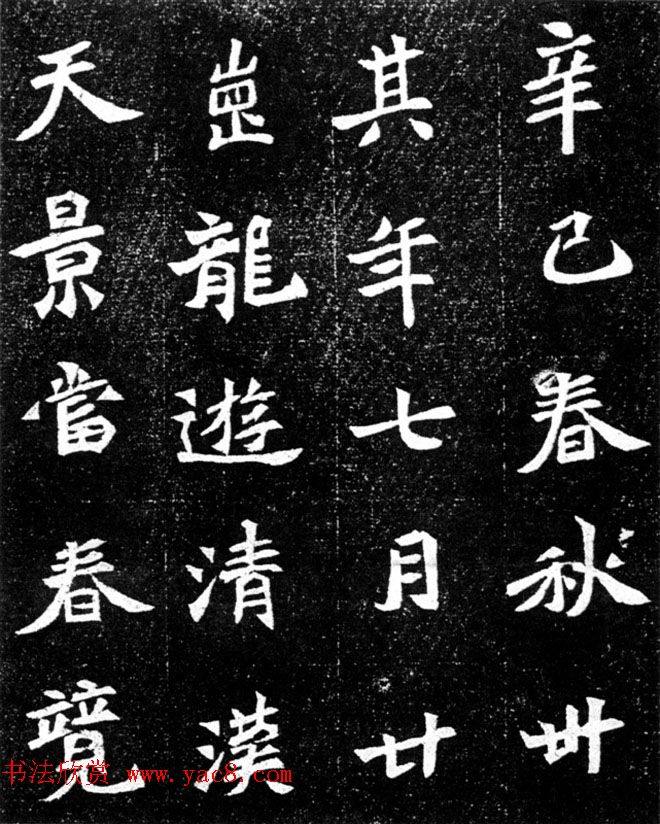 辛巳春秋卅
其年七月廿
龍遊清漢
天景當春
书法欣赏 www.yac8.com